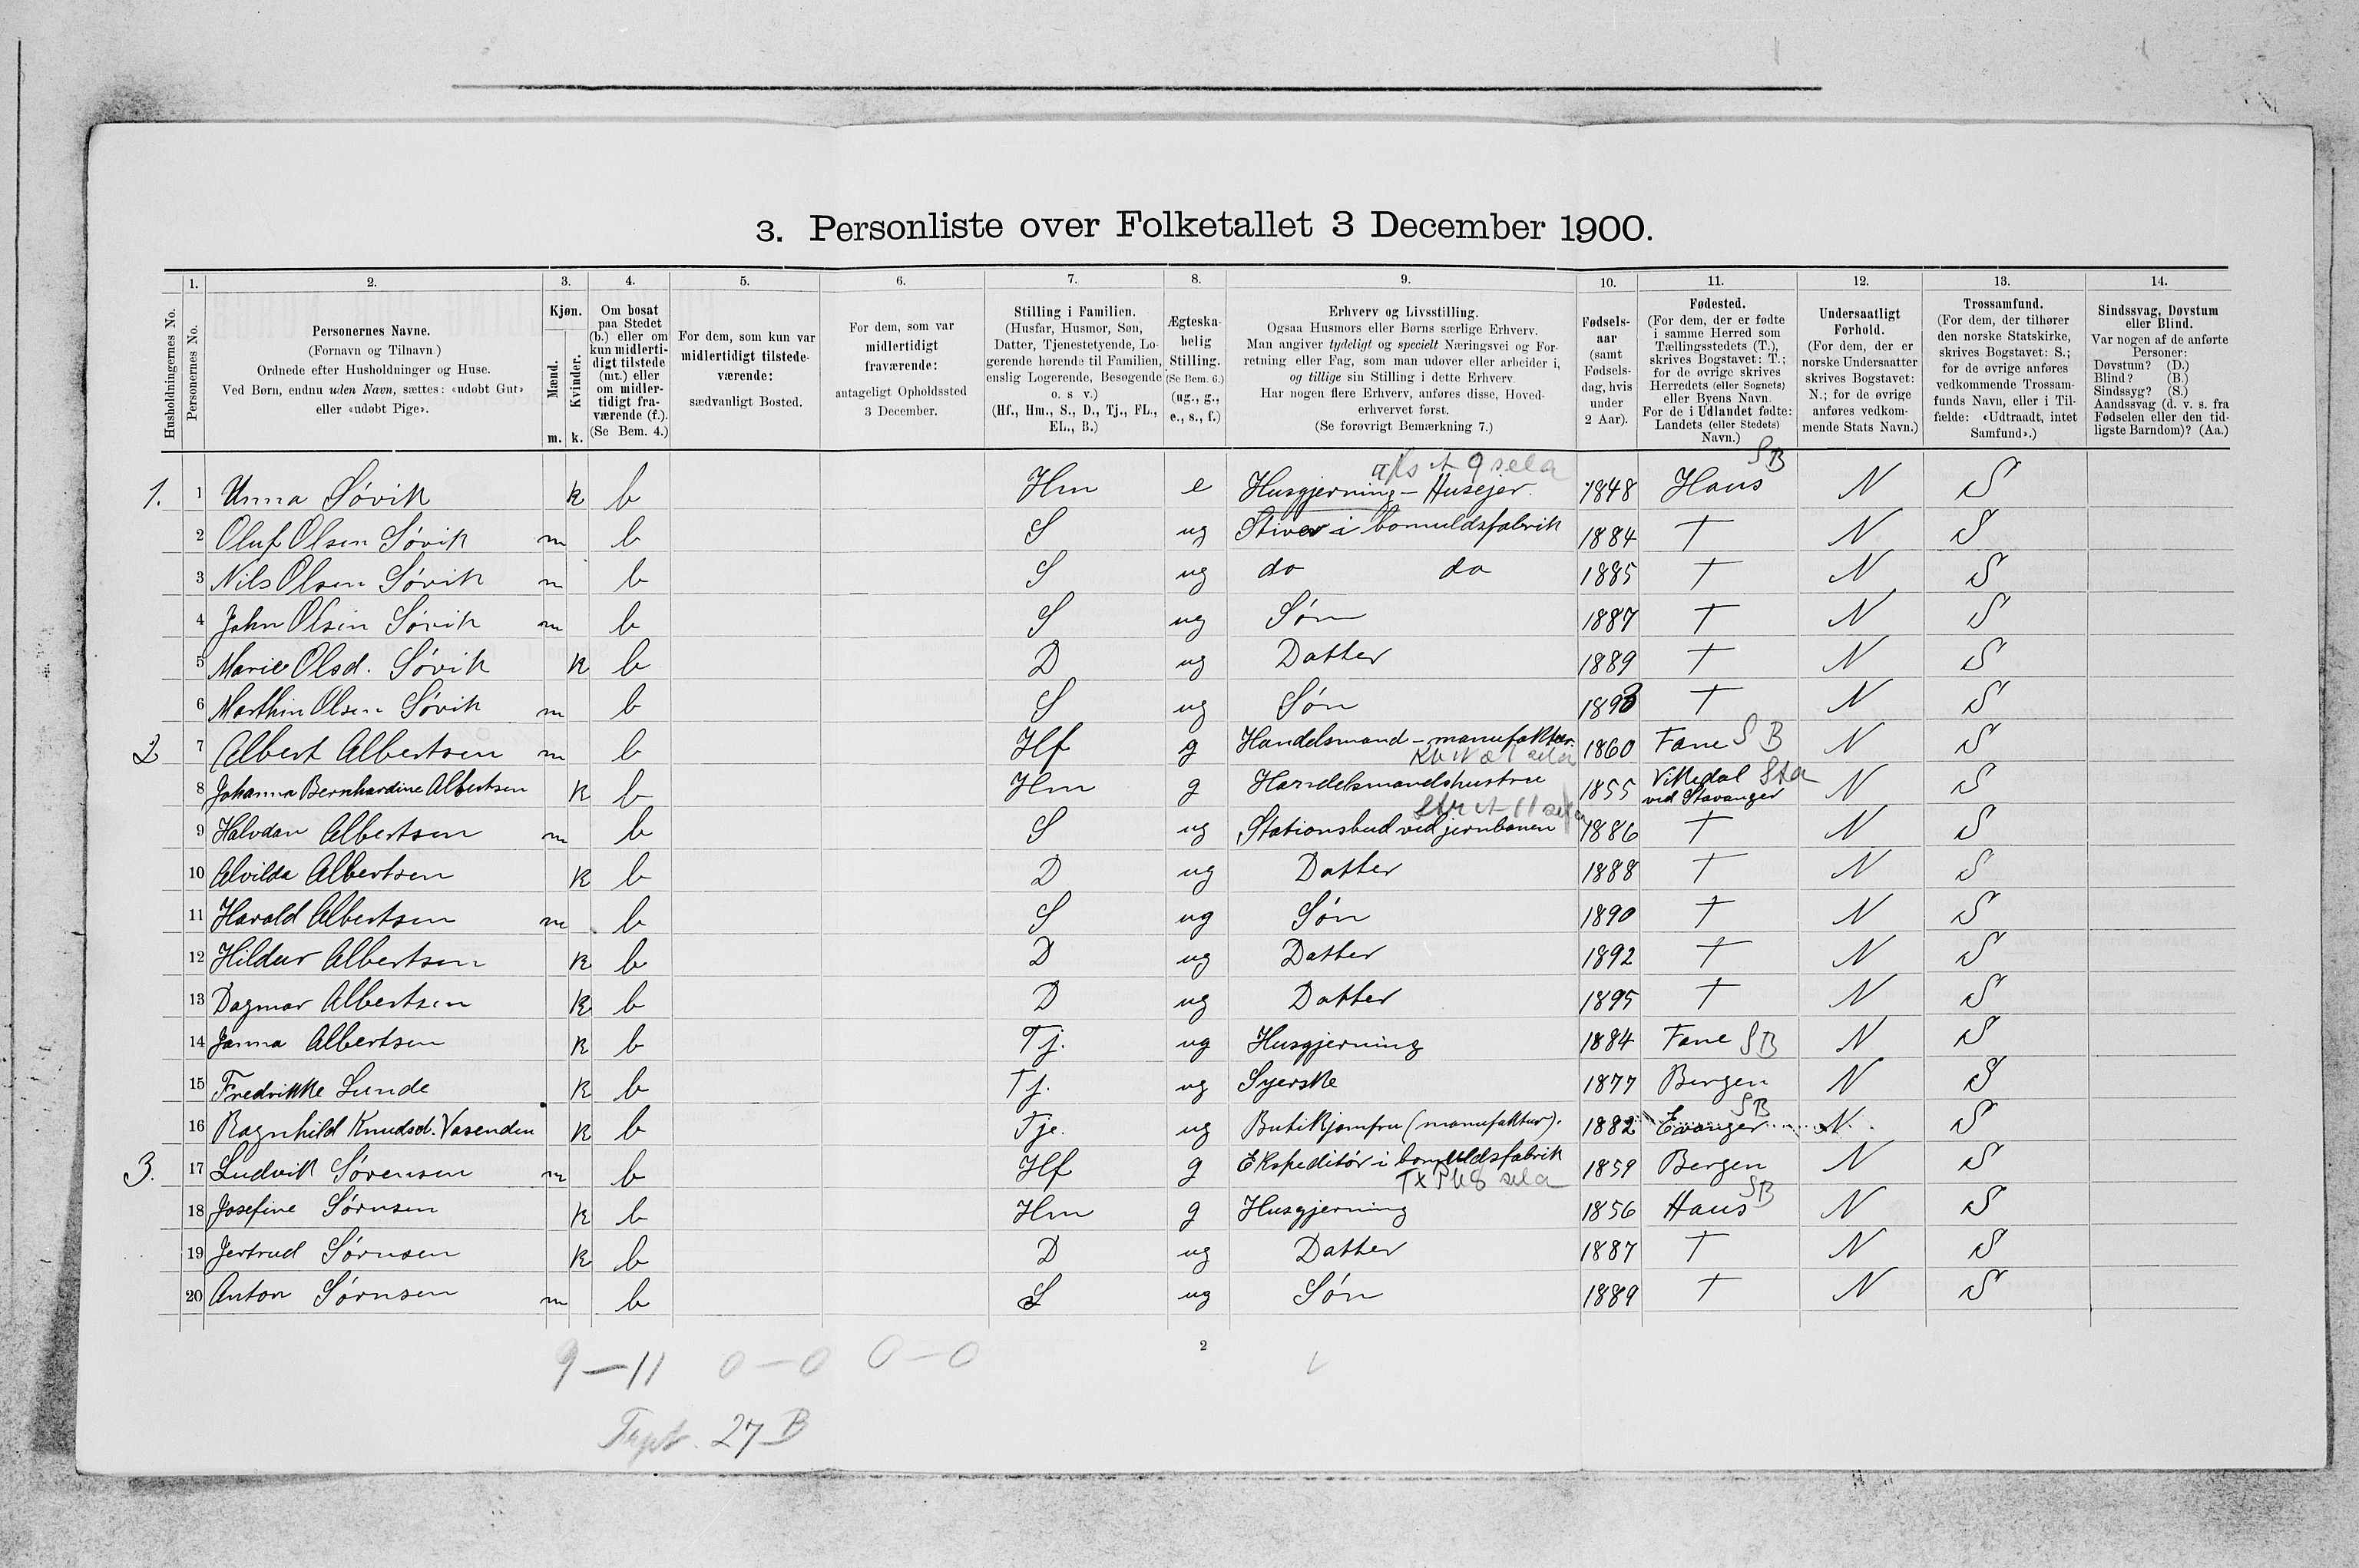 3. Personliste over Folketallet 3 December 1900.
1. 2. 3. 4. 5. 6. 7. 8. 9. 10. 11. 12. 13. 14.
Husholdningernes No.
Personernes No.
Personernes Navne.
(Fornavn og Tilnavn)
Ordnede efter Husholdninger og Huse.
Ved Børn, endnu uden Navn, sættes: «udøbt Gut»
eller «udøbt Pige».
Kjøn.
Mænd.
Kvinder.
m. k.
Om bosat
paa Stedet
(b.) eller om
kun midlerti-
digt tilstede
(mt.) eller
om midler-
tidigt fra-
værende (f.).
(Se Bem. 4.)
For dem, som kun var
midlertidigt tilstede-
værende:
sædvanligt Bosted.
For dem, som var
midlertidigt
fraværende:
antageligt Opholdssted
3 December.
Stilling i Familien.
(Husfar, Husmor, Søn,
Datter, Tjenestetyende, Lo-
gerende hørende til Familien,
enslig Logerende, Besøgende
o. s v.)
(Hf., Hm., S., D., Tj., FL.,
EL., B.)
Ægteska-
belig
Stilling.
(Se Bem. 6.)
(ug., g.,
e., s., f.)
Erhverv og Livsstilling.
Ogsaa Husmors eller Børns særlige Erhverv.
Man angiver tydeligt og specielt Næringsvei og For-
retning eller Fag, som man udøver eller arbeider i,
og tillige sin Stilling i dette Erhverv.
Har nogen flere Erhverv, anføres disse, Hoved-
erhvervet først.
(Se forøvrigt Bemærkning 7.)
Fødsels-
aar
(samt
Fødsels-
dag, hvis
under
2 Aar).
Fødested.
(For dem, der er fødte
i samme Herred som
Tællingsstedets (T.),
skrives Bogstavet: T.;
for de øvrige skrives
Herredets (eller Sognets)
eller Byens Navn.
For de i Udlandet fødte:
Landets (eller Stedets)
Navn.)
Undersaatligt
Forhold.
(For dem, der er
norske Undersaatter
skrives Bogstavet:
N.; for de øvrige
anføres vedkom-
mende Stats Navn.)
Trossamfund.
(For dem, der tilhører
den norske Statskirke,
skrives Bogstavet: S.;
for de øvrige anføres
vedkommende Trossam-
funds Navn, eller i Til-
fælde: «Udtraadt, intet
Samfund».)
Sindssvag, Døvstum
eller Blind.
Var nogen af de anførte
Personer:
Døvstum? (D.)
Blind? (B.)
Sindssyg? (S.)
Aandssvag (d. v. s. fra
Fødselen eller den tid-
ligste Barndom)? (Aa.)
SB
1. 1 Anna Søvik k b Hm e Husgjerning - Husejer. 1848 Haus N S
2 Oluf Olsen Søvik m b S ug Stiver i bomuldsfabrik 1884 T N S
3 Nils Olsen Søvik m b S ug do do 1885 T N S
4 John Olsen Søvik m b S ug Søn 1887 T N S
5 Marie Olsd. Søvik k b D ug Datter 1889 T N S
6 Marthin Olsen Søvik m b S ug Søn 1893 T N S
2 7 Albert Albertsen m b Hf g Handelsmand - manufaktur. 1860 Fane SB N S
8 Johanna Bernhardine Albertsen k b Hm g Handelsmandshustru 1855 Vikedal Sta N S
ved Stavanger
9 Halvdan Albertsen m b S ug Stationsbud ved jernbanen 1886 T N S
10 Alvilda Albertsen k b D ug Datter 1888 T N S
11 Harald Albertsen m b S ug Søn 1890 T N S
12 Hildur Albertsen k b D ug Datter 1892 T N S
13 Dagmar Albertsen k b D ug Datter 1895 T N S
14 Janna Albertsen k b Tj. ug Husgjerning 1884 Fane SB N S
15 Fredrikke Lunde k b Tj. ug Syerske 1877 Bergen N S
SB
16 Ragnhild Knudsd. Vasenden k b Tje. ug Butikjomfru (manufaktur). 1882 Evanger N. S
3. 17 Ludvik Sørensen m b Hf g Ekspeditør i bomuldsfabrik 1859 Bergen N S
SB
18 Josefine Sørnsen k b Hm g Husgjerning 1856 Haus N S
19 Jertrud Sørnsen k b D ug Datter 1887 T N S
20 Anton Sørnsen m b S ug Søn 1889 T N S
2
9-11 0-0 0-0
27 B